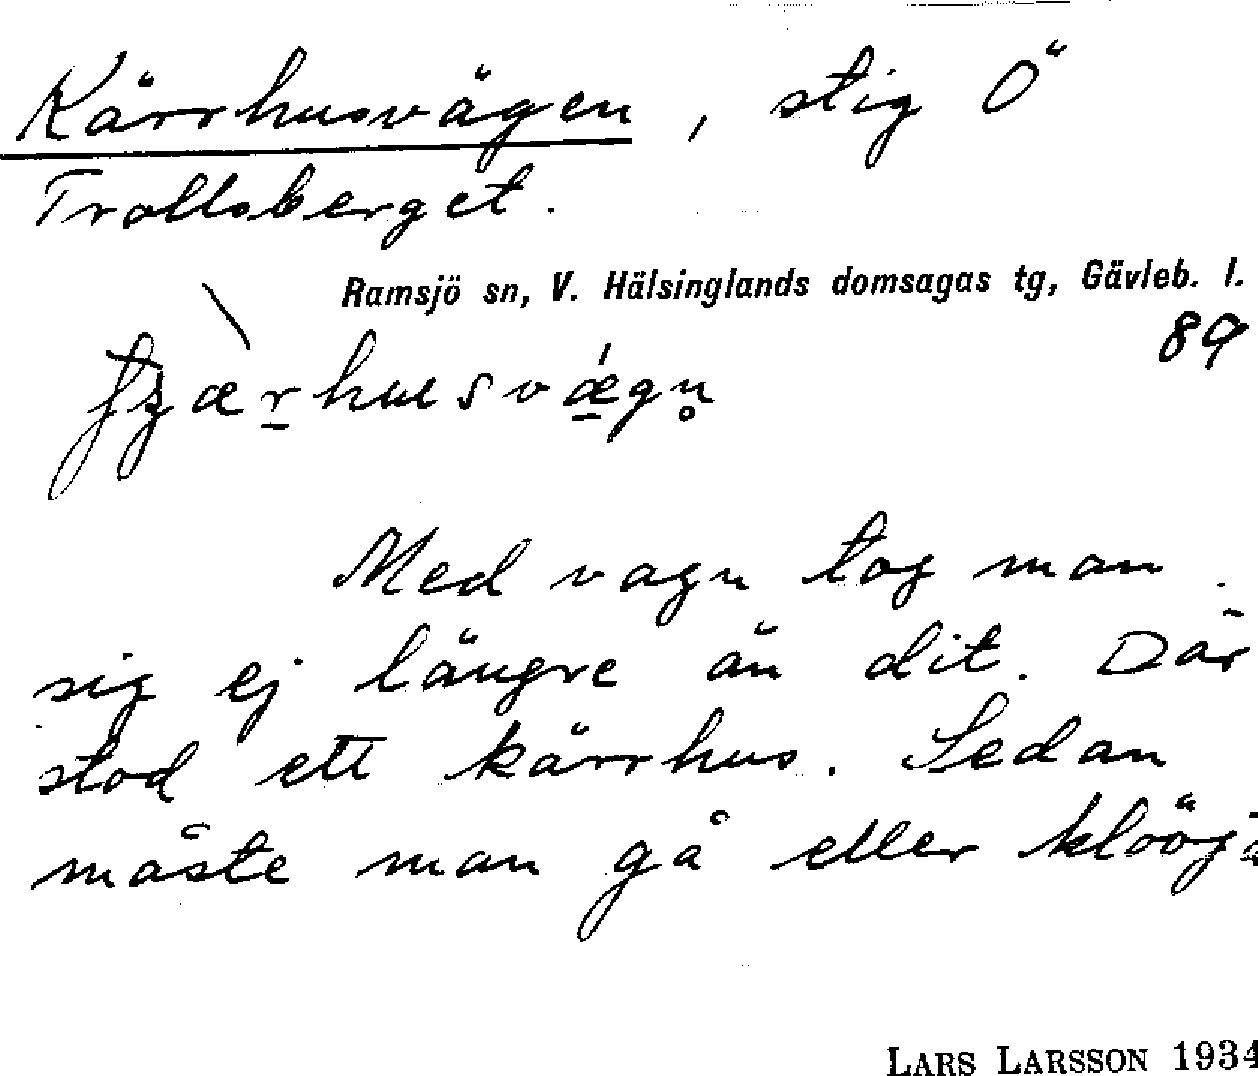 Kärrhusvägen, stig Ö
Trollsberget.
Ramsjö sn, V. Hälsinglands domsagas tg, Gävleb. l.
89
Med vagn tog man
sig ej längre än dit. Där
stod ett kärrhus. Sedan
måste man gå eller klööja
LARS LARSSON 1934